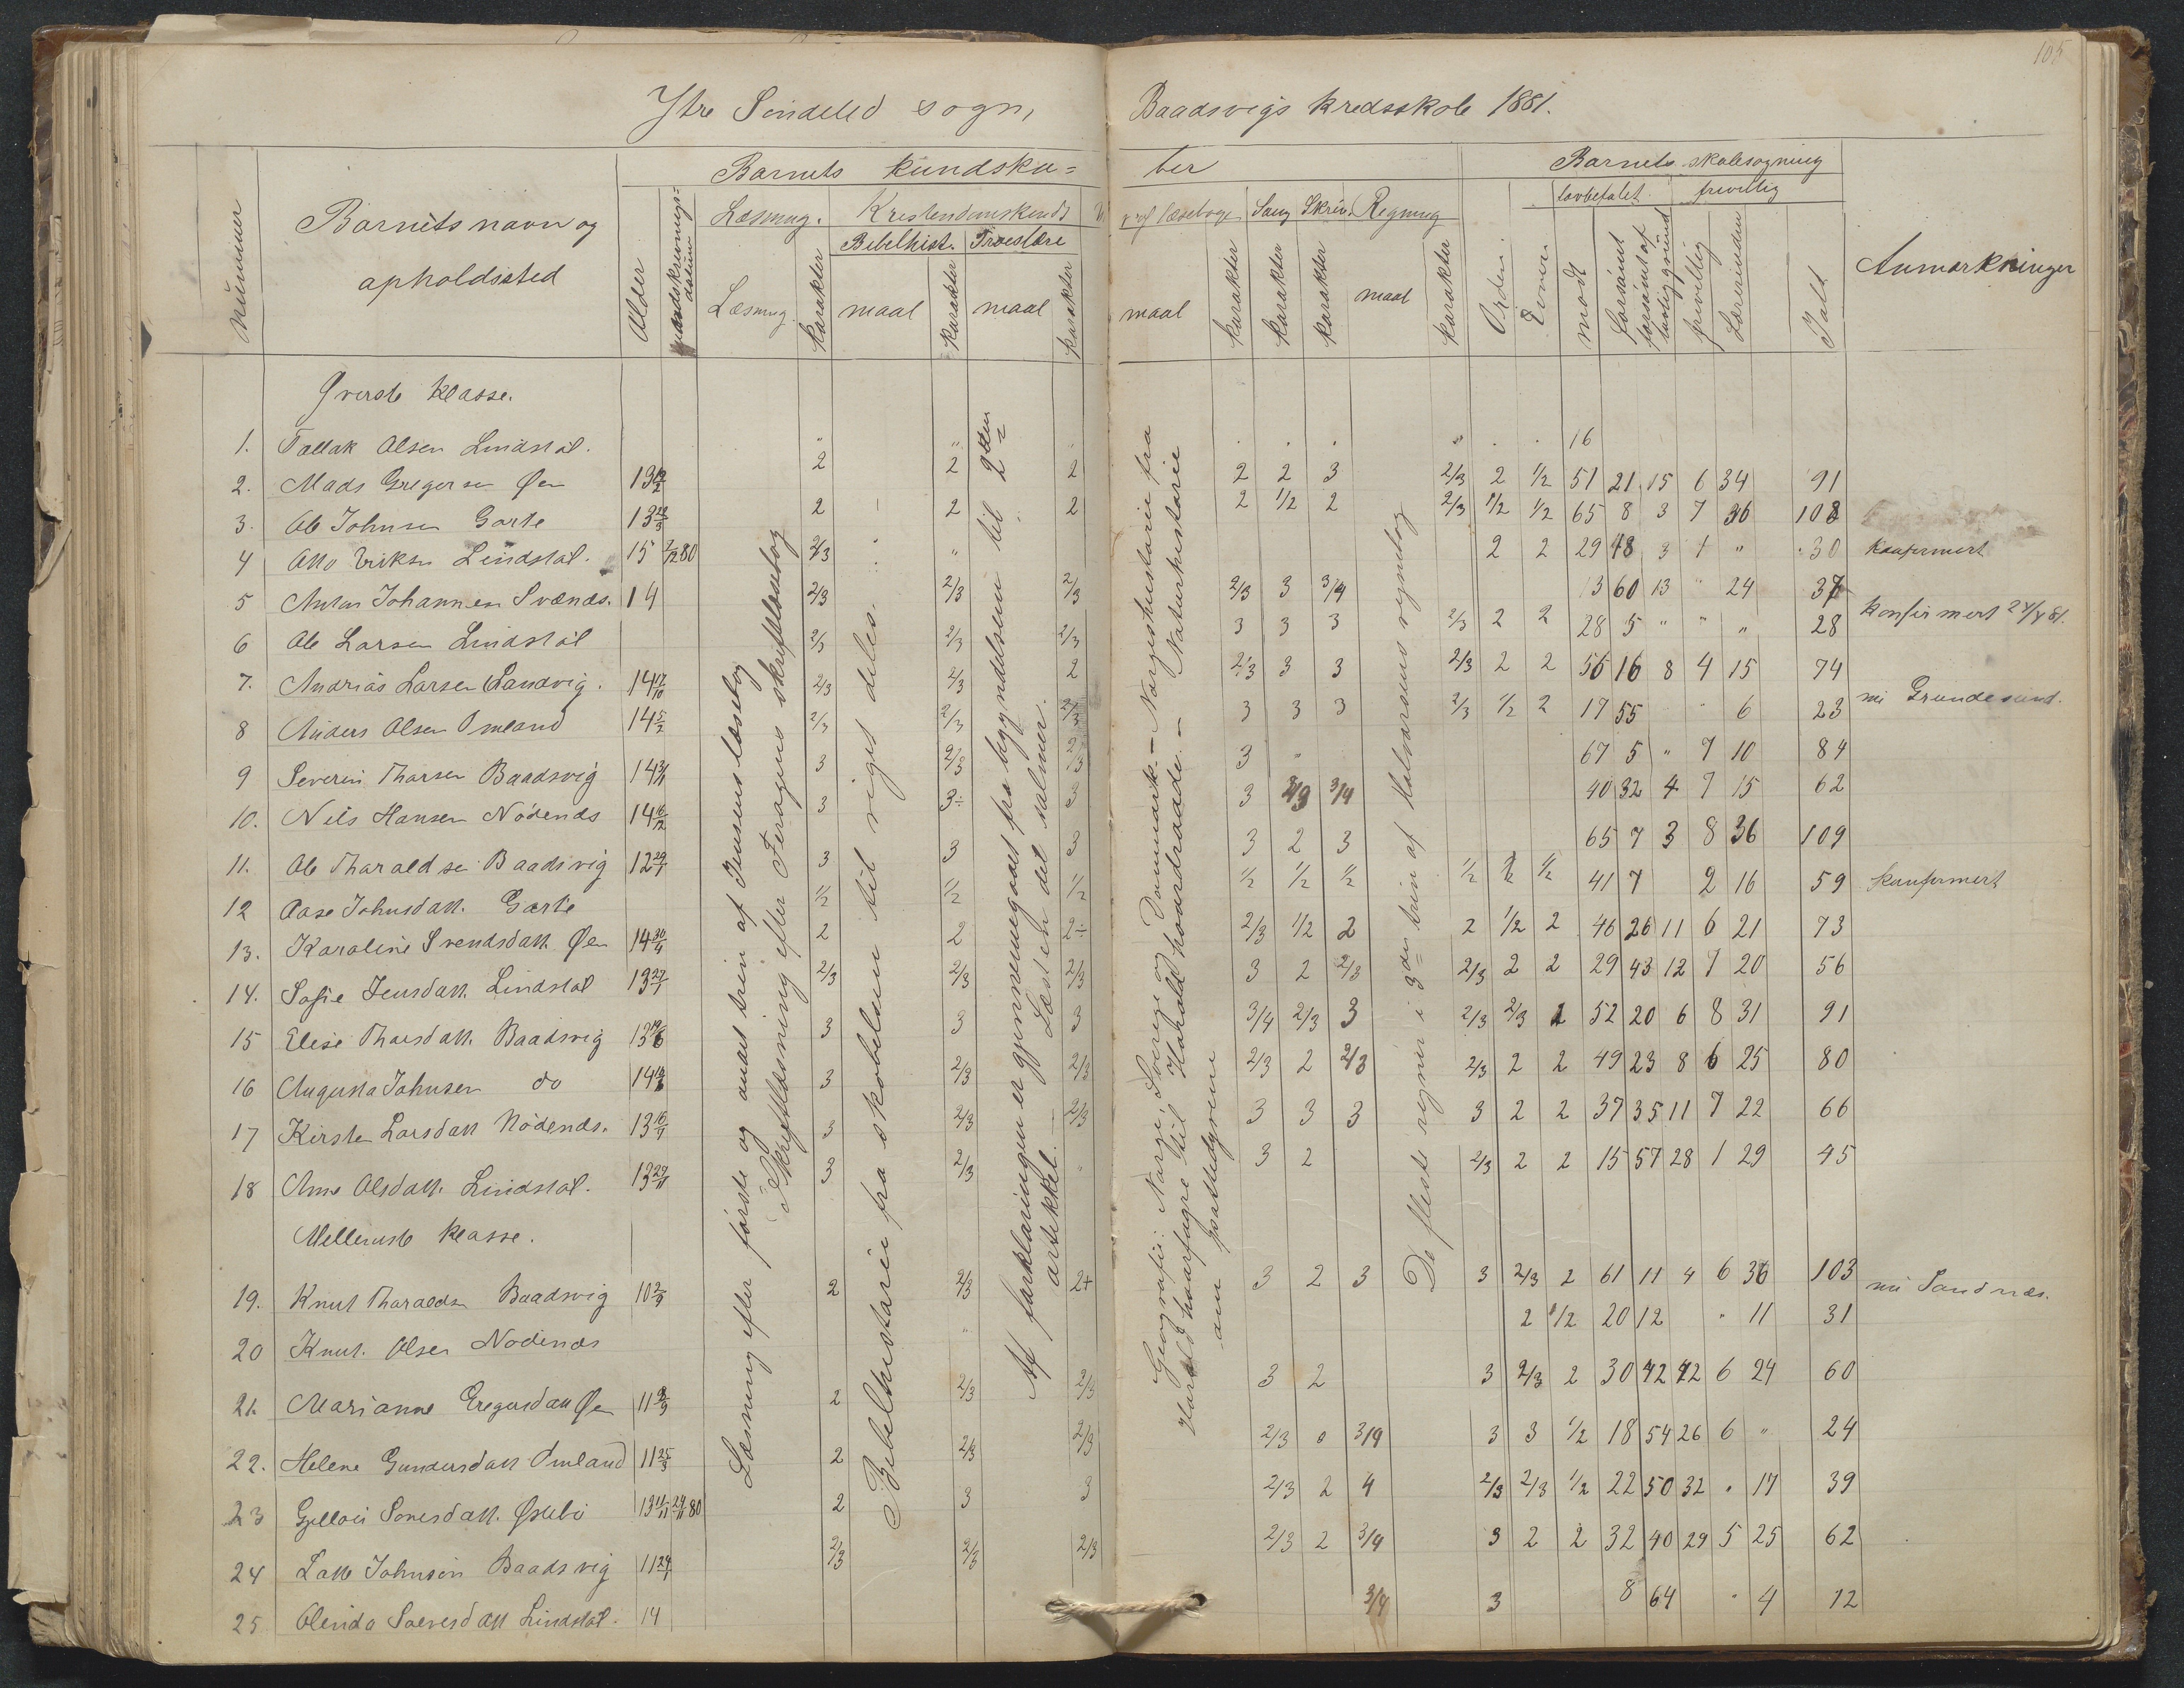 105
Ytre Söndeled sogn, Baadsvigs kredsskole 1881.
Barnets kundska= ber
Barnets skolesøgning
lovbefalet. frivillig
nummer
Barnets navn og
opholdssted
Alder
datum
Læsning. Kristendomskundsk
Bibelhist. Troeslære
Læsning. karakter maal karakter maal karakter
læsebogen Sang Skriv. Regning
maal karakter karakter karakter maal karakter
Orden Evner mødt forsømt forsømt af lovlig grund frivillig Ialt
Anmærkninger
Øverste klasse.
1. Tallak Olsen Lindstøl. 16
2. Mads Gregersen Øen 13 2 2 2 2 2 3 2/3 2 1/2 51 21 15 6 34 91
3. Ole Johnsen Garte 13 2 2 2 2 1/2 2 2/3 1/2 1/2 65 8 3 7 36 108
4 Otto Eriksen Lindstøl. 15 80 2/3 " 2 2 29 48 3 1 " 30 konfirmert
5 Anton Johannesen Svænds. 14 2/3 2/3 2/3 2/3 3 3/4 13 60 13 " 24 37
6 Ole Larsen Lindstøl 2/3 2/3 2/3 3 3 3 2/3 2 2 28 5 " " " 28 konfirmert 24/4 81.
7. Andrias Larsen Sandvig. 14 17/10 2/3 2/3 2 2/3 3 3 2/3 2 2 56 16 8 4 15 74
8 Anders Olsen Omland 14 5/2 2/3 2/3 2/3 3 3 3 2/3 1/2 2 17 55 " 6 23 nu Grundesund.
9 Severin Tharsen Baadsvig 14 3 2/3 2/3 3 " 67 5 " 7 10 84
10. Nils Hansen Nödenæs 14 3 3÷ 3 3 2/3 3/4 40 32 4 7 15 62
11. Ole Tharaldsen Baadsvig 12 3 3 3 3 2 3 65 7 3 8 36 109
12 Aase Johnsdatt. Garte 1/2 1/2 1/2 1/2 1/2 1/2 1/2 1/2 1/2 41 7 2 16 59 konfirmert
13. Karoline Svendsdatt Øen 14 30/4 2 2 2÷ 2/3 1/2 2 2 1/2 2 46 26 11 6 21 73
14. Sofie Jensdatt. Lindstøl 13 2/3 2/3 2/3 3 2 2/3 2/3 2 2 29 43 12 7 20 56
15 Elise Tharsdatt. Baadsvig 13 3 3 3 3/4 2/3 3 2/3 2/3 2 52 20 6 8 31 91
16 Augusta Johnsen do 14 3 2/3 2/3 2/3 2 2/3 2/3 2 2 49 23 8 6 25 80
17 Kirsten Larsdatt Nödenæs. 13 3 2/3 2/3 3 3 3 3 2 2 37 35 11 7 22 66
18 Anne Olsdatt. Lindstøl. 13 3 2/3 " 3 2 2/3 2 2 15 57 28 1 29 45
Mellemste klasse.
19. Knut Tharaldsen Baadsvig 10 2 2/3 2+ 3 2 3 3 2/3 2 61 11 4 6 36 103
20 Knut. Olsen Nödenæs " 2 1/2 20 12 " 11 31 nu Sandnæs.
21. Marianne Gregersdatt Øen 11 2 2/3 2/3 3 2 3 2/3 2 30 42 42 6 24 60
22. Helene Gundersdatt Omland 11 25/3 2 2/3 2/3 2/3 0 3/4 3 3 1/2 18 54 26 6 " 24
23 Sonesdatt. Østebö 13 80 2 3 3 2/3 2 4 2/3 2/3 1/2 22 50 32 " 17 39
24 Johnsen Baadsvig 11 2/3 2/3 2/3 2/3 2 3/4 3 2 2 32 40 29 5 25 62
25 Olenda Lindstøl. 14 3/4 3 8 64 " 4 12
Læsning efter første og andet trin af Jensens læsebog
Skriftlæsning efter skriftlæsebog
Bibelhistorie fra skabelsen til riget deles.
Af forklaringen er gjennemgaaet fra begyndelsen til 2den artikkel. Læst en del salmer.
Geografi: Norge, Sverige og Danmark. – Norgeshistorie fra
Harald haarfagre til Harald haardraade. – Naturhistorie
om pattedyrene
De fleste regner i 3die trin af Halvorsens regnebog